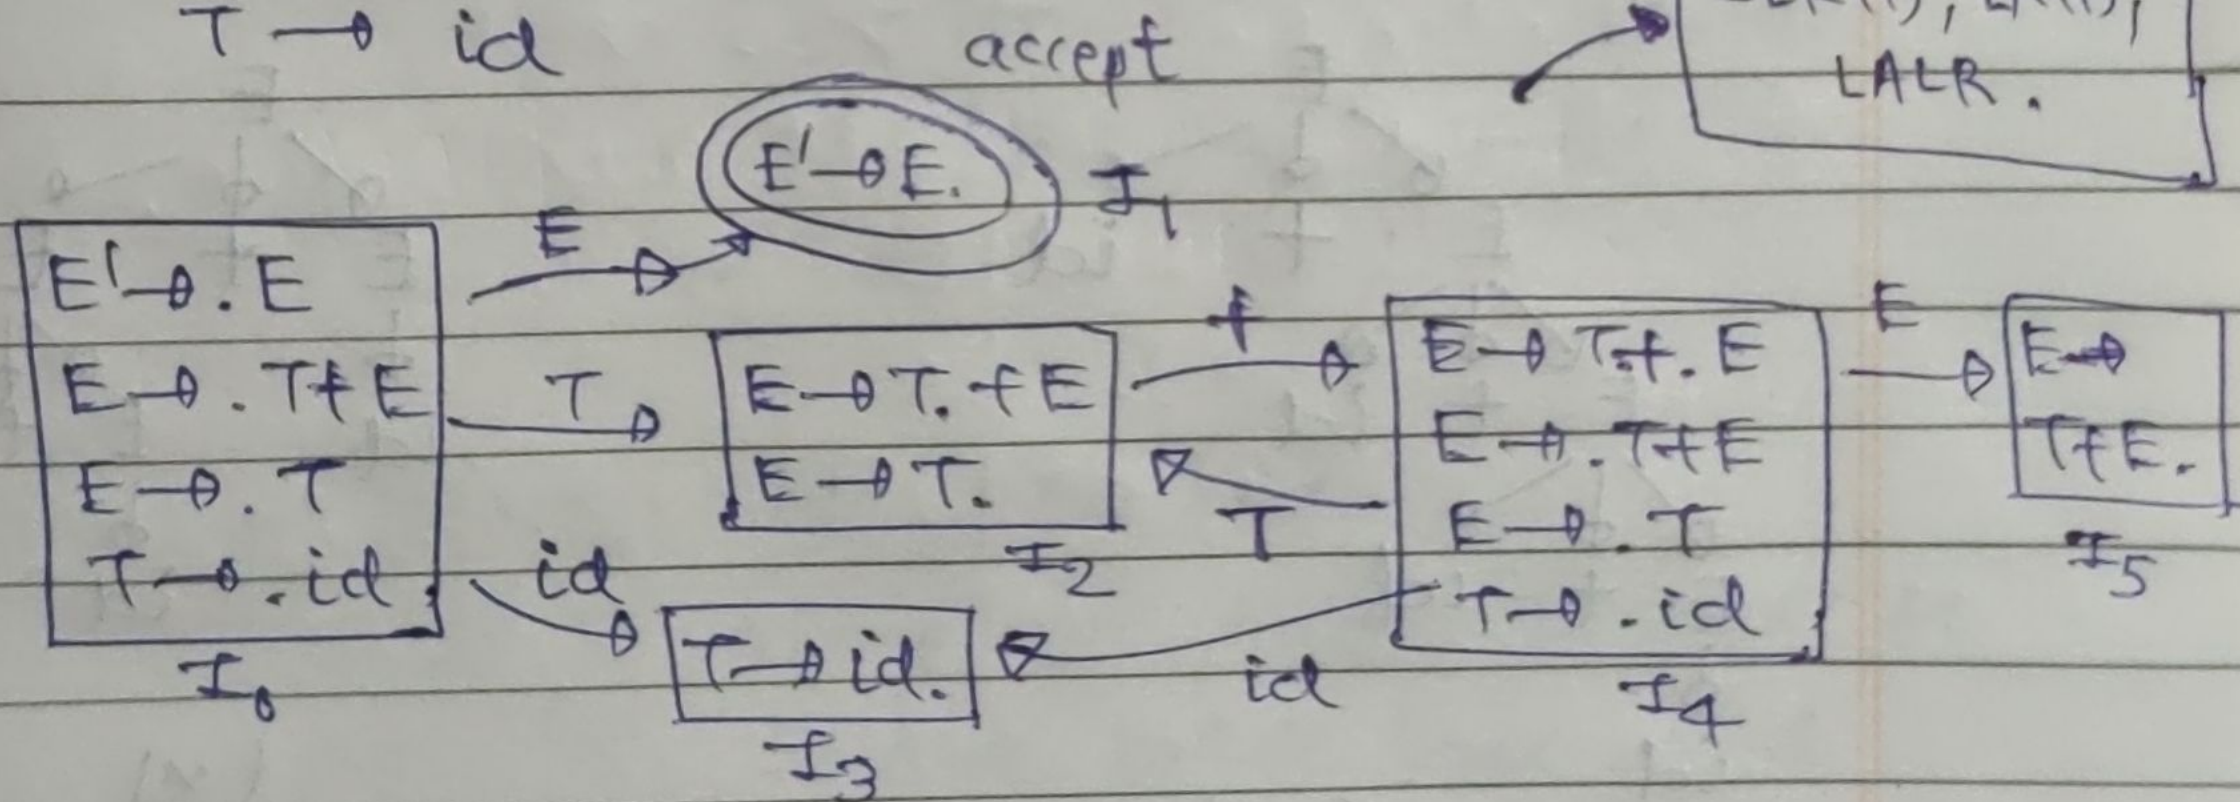 T → id
accept
LALR.
E' → E.
I1
E
E' → .E
E → .T+E
E → .T
T → .id
I0
T
id
E → T.+E
E → T.
I2
T → id.
I3
+
T
id
E → T+.E
E → .T+E
E → .T
T → .id
I4
E
E →
T+E.
I5